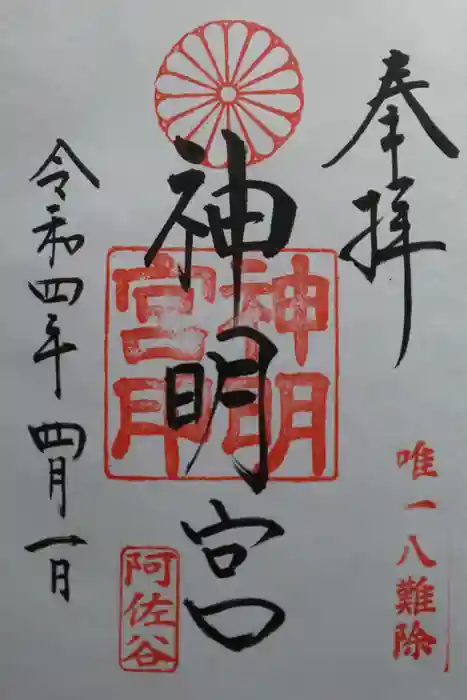 奉拝
唯一八難除
神明宮
神明
宮印
阿佐谷
令和四年四月一日